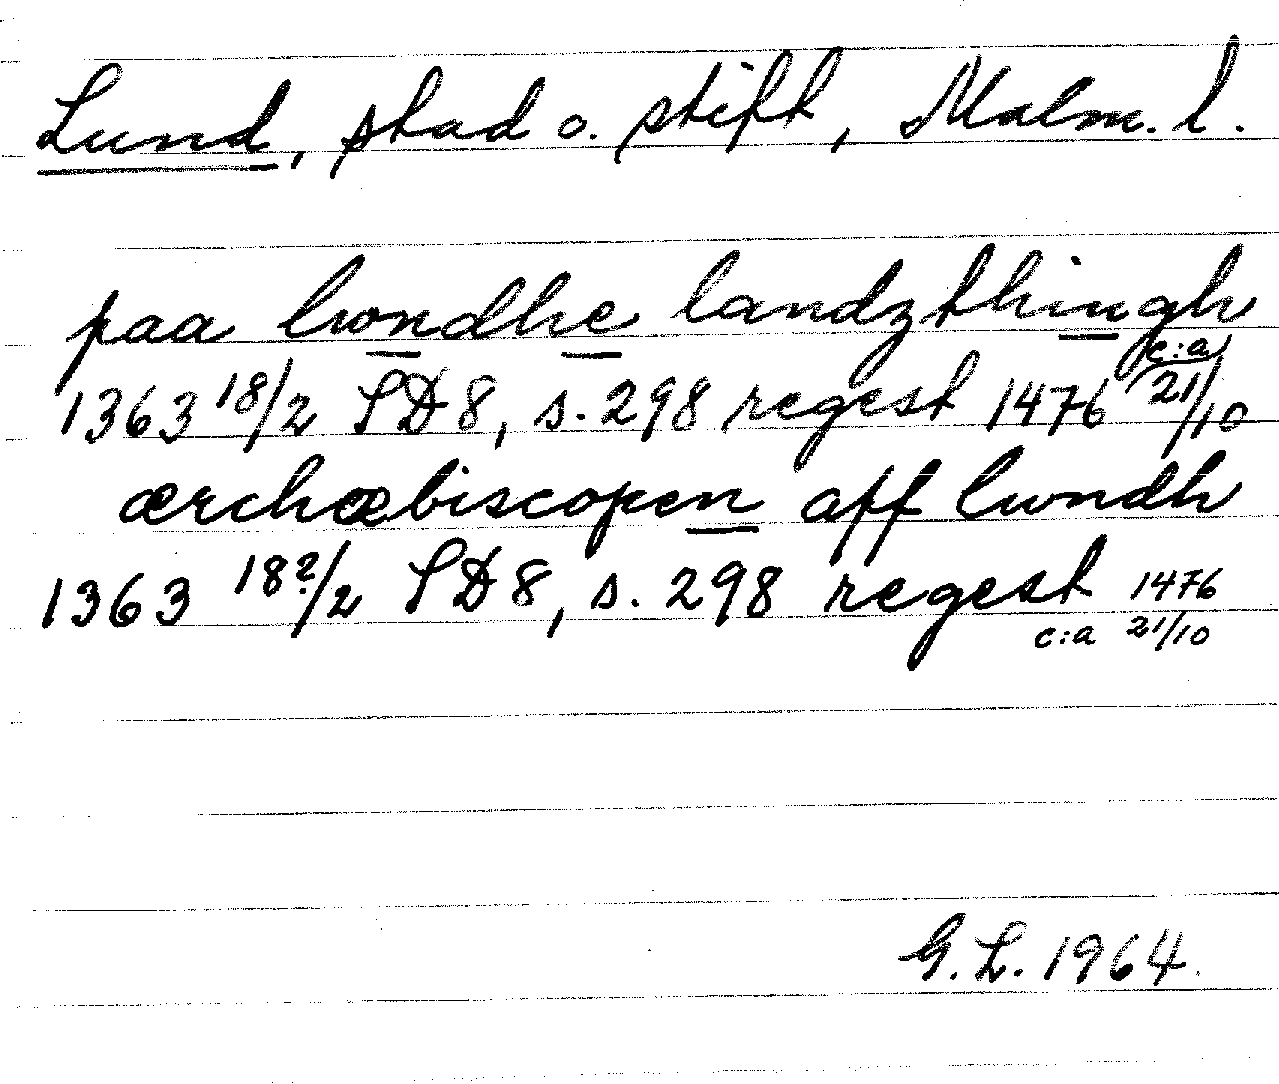 Lund, stad o. stift, Malm. l.
paa lwndhe landzthingh
1363 18/2 SD 8, s. 298 regest 1476 c:a 21/10
ærchæbiscopen aff lwndh
1363 18?/2 SD 8, s. 298 regest 1476
c:a 21/10
G. L. 1964.